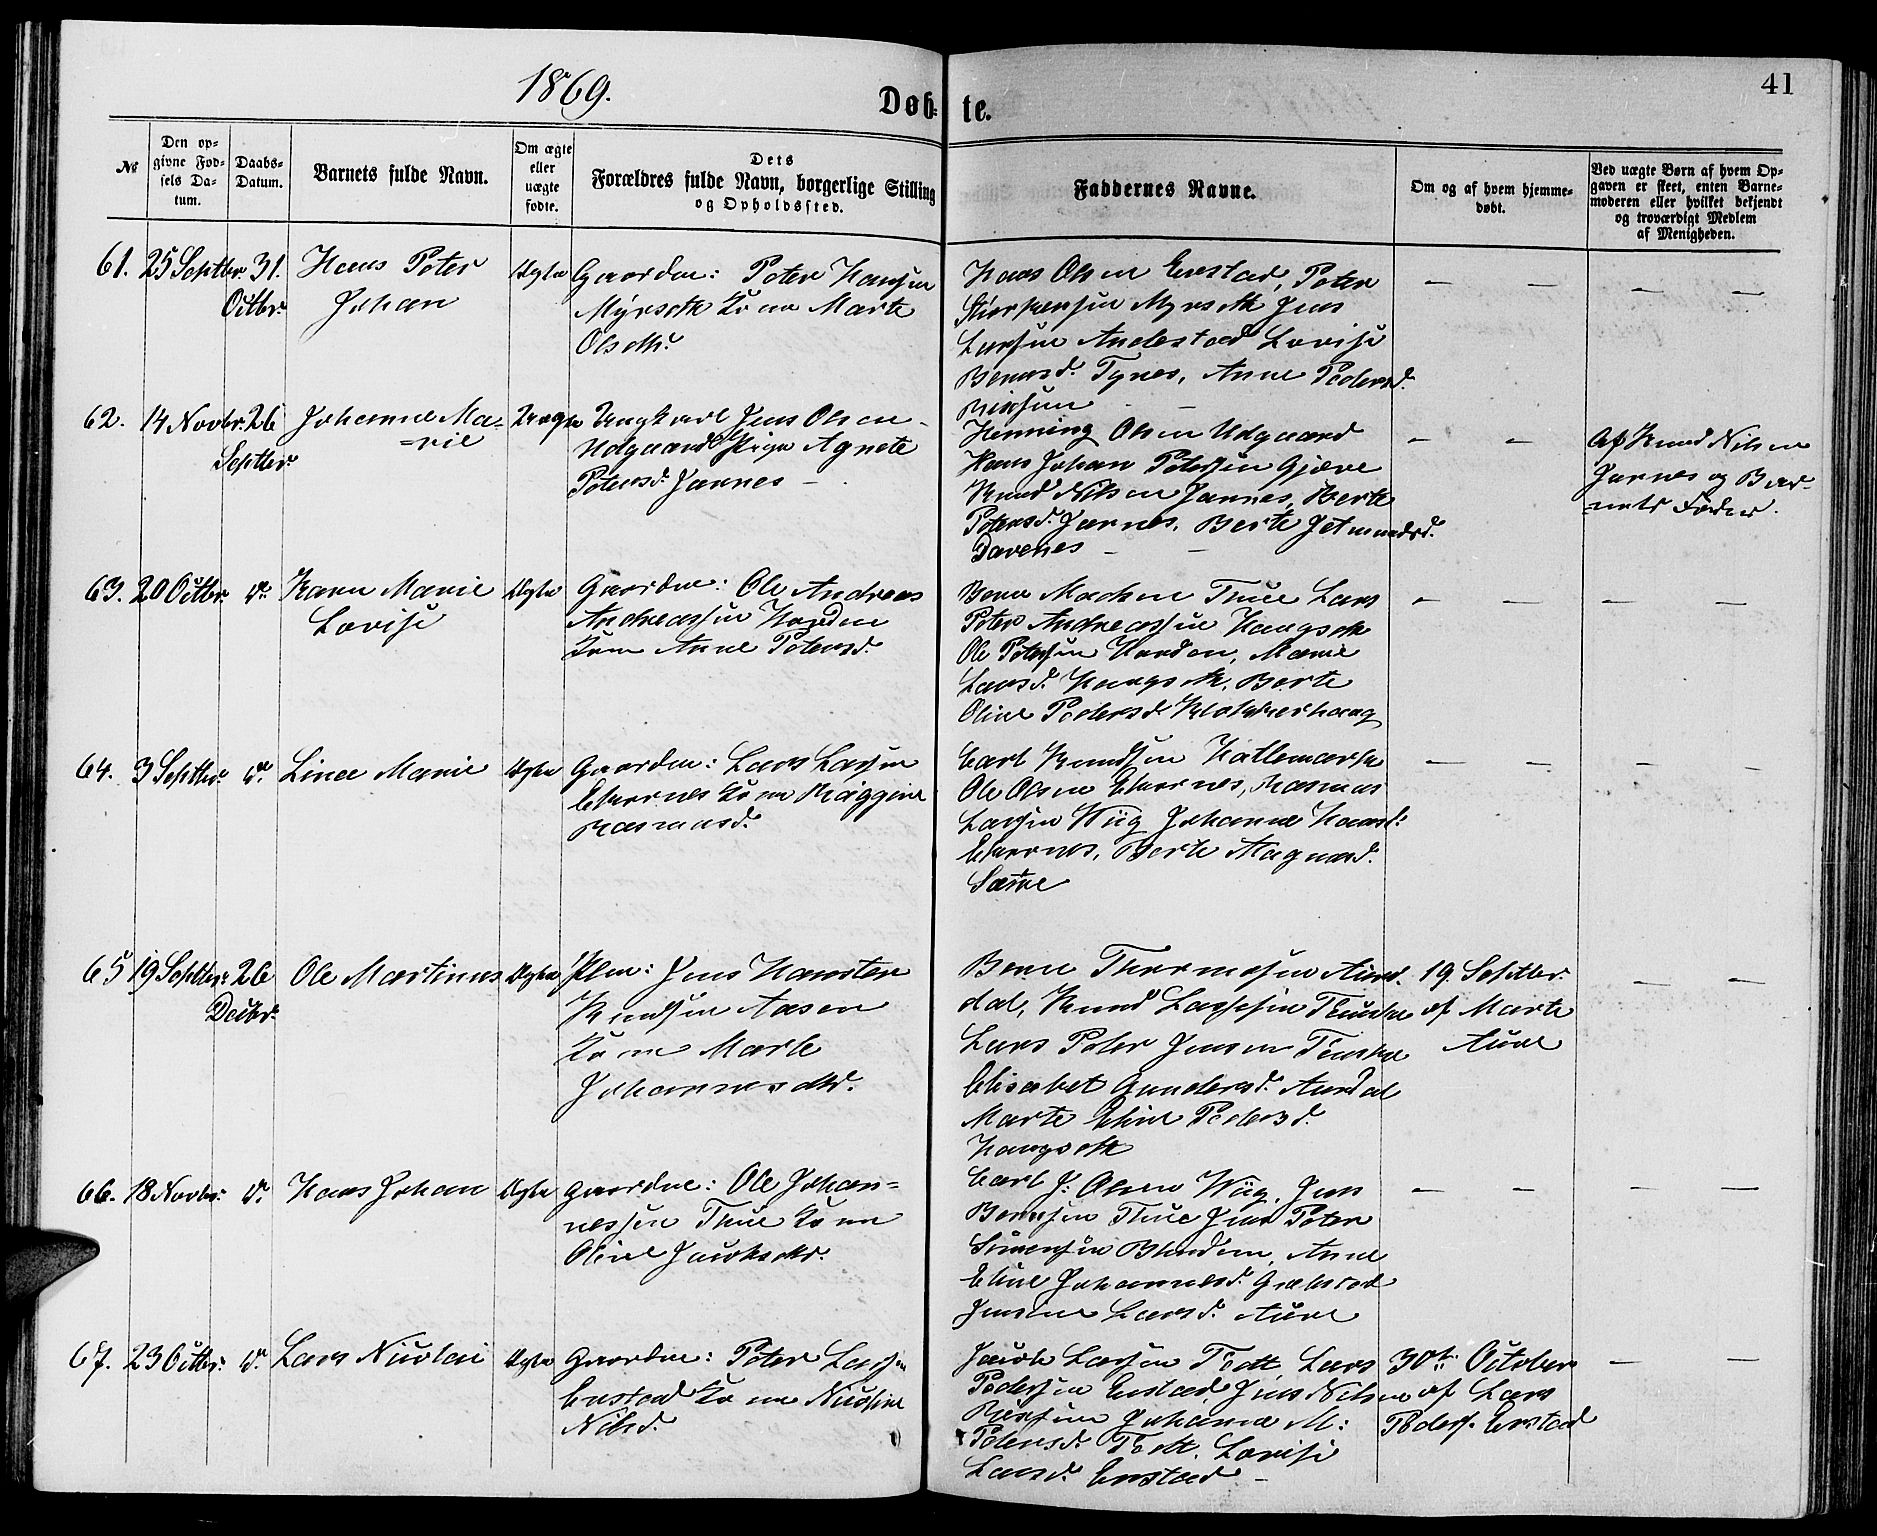 1869.
41
Døb- te.
№
Den op-
givne Fød-
sels Da-
tum.
Daabs-
Datum.
Barnets fulde Navn.
Om ægte
eller
uægte
fødte.
Dets
Forældres fulde Navn, borgerlige Stilling
og Opholdssted.
Faddernes Navne.
Om og af hvem hjemme-
døbt.
Ved uægte Børn af hvem Op-
gaven er skeet, enten Barne-
moderen eller hvilket bekjendt
og troværdigt Medlem
af Menigheden.
61. 25 Septbr. 31.
Octbr.
Hans Peter
Johan
Ægte
Gaardm: Peter Hansen
Myrseth Kone Marte
Olsdtr.
Hans Olsen Enstad, Peter
Myrseth Jens
Larsen Andestad Lovise
Bernsd. Tynes, Anne Pedersd.
62. 14 Novbr. 26
Septbr.
Johanne Ma-
rie
Uægte
Ungkarl Jens Olsen
Udgaard Pige Agnete
Petersd. Jarnes -
Henning Olsen Udgaard
Hans Johan Petersen Gjæve
Knud Nilsen Jarnes, Berte
Petersd. Jarnes, Berte Jetmundsd.
Davenes - -
Af Knud Nilsen
Jarnes og Bar-
nets Fader.
63. 20 Octbr. do.
Karen Marie
Lovise
Ægte
Gaardm: Ole Andreas
Andreassen Haredn
Kone Anne Petersd.
Bern Madsen Thue Lars
Peter Andreassen Haugseth
Ole Petersen Marie
Larsd. Haugseth, Berte
Oline Pedersd. Klokkerhaug
64. 3 Septbr. do.
Linee Marie
Ægte
Gaardm: Lars Larsen
Ekornes Kone
Rasmusd.
Carl Knudsen Hatlemark
Ole Olsen Ekornes, Rasmus
Larsen Wiig Johanne Hansd.
Ekornes, Berte Magnusd.
65 19 Septbr. 26
Decbr.
Ole Martinus
Ægte
Plm: Jens Karsten
Knudsen Aasen
Kone Marte
Johannesdtr.
Bern Thormosen Aurd-
dal, Knud Lassesen
Lars Peter Jensen
Elisabet Gundersd. Aurdal
Marte Eline Pedersd.
Haugseth
19. Septbr.
af Marte
Aure
66. 18 Novbr. do.
Hans Johan
Ægte
Gaardm: Ole Johan-
nessen Thue Kone
Oline Jacobsdtr.
Carl J: Olsen Wiig, Jens
Berntsen Thue Jens Peter
Simensen Blindem, Anne
Eline Johannesd.
Jensine Larsd. Aure
67. 23 Octbr. do.
Lars Nicolai
Ægte
Gaardm: Peter Larsen
Enstad Kone Nicoline
Nilsd.
Jacob Larsen Todt, Lars
Pedersen Enstad, Jens Nilsen
Johanne M:
Petersd. Todt, Lovise
Larsd. Enstad -
30te October
af Lars
Peders. Enstad